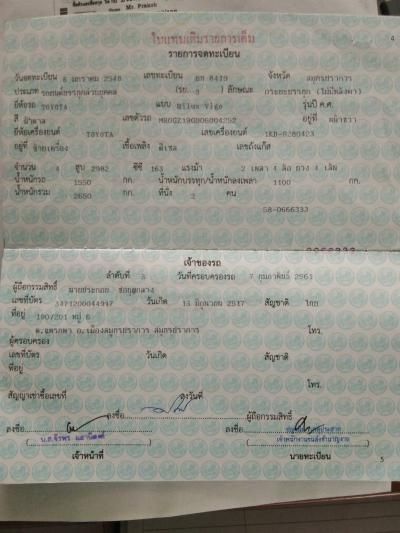 Mr. Prakob
4
ใบแทนเติมรายการเต็ม
รายการจดทะเบียน
วันจดทะเบียน 6 มกราคม 2548 เลขทะเบียน 8410 จังหวัด สมุทรปราการ
ประเภท รถยนต์บรรทุกส่วนบุคคล (รย. 3) ลักษณะ กระบะบรรทุก (ไม่มีหลังคา)
ยี่ห้อรถ TOYOTA แบบ Hilux Vigo รุ่นปี ค.ศ.
สี เลขตัวรถ อยู่ที่
ยี่ห้อเครื่องยนต์ TOYOTA เลขเครื่องยนต์ 1KD-8280423
อยู่ที่ ซ้ายเครื่อง เชื้อเพลิง ดีเซล เลขถังแก๊ส
จำนวน 4 สูบ 2982 ซีซี 163 แรงม้า 2 เพลา 4 ล้อ ยาง 4 เส้น
น้ำหนักรถ 1550 กก. น้ำหนักบรรทุก/น้ำหนักลงเพลา 1100 กก.
น้ำหนักรวม 2650 กก. ที่นั่ง 2 คน
58-0666333
เจ้าของรถ
ลำดับที่ 3 วันที่ครอบครองรถ 7 กุมภาพันธ์ 2561
ผู้ถือกรรมสิทธิ์ นายประกอบ
เลขที่บัตร 3471200044947 วันเกิด 13 มิถุนายน 2517 สัญชาติ ไทย
ที่อยู่ 190/201 หมู่ 6
ต.แพรกษา อ.เมืองสมุทรปราการ สมุทรปราการ โทร.
ผู้ครอบครอง
เลขที่บัตร วันเกิด สัญชาติ
ที่อยู่
โทร.
สัญญาเช่าซื้อเลขที่ ลงวันที่
ลงชื่อ ผู้ถือกรรมสิทธิ์
ลงชื่อ ลงชื่อ
เจ้าพนักงานขนส่งชำนาญงาน
เจ้าหน้าที่ นายทะเบียน
5